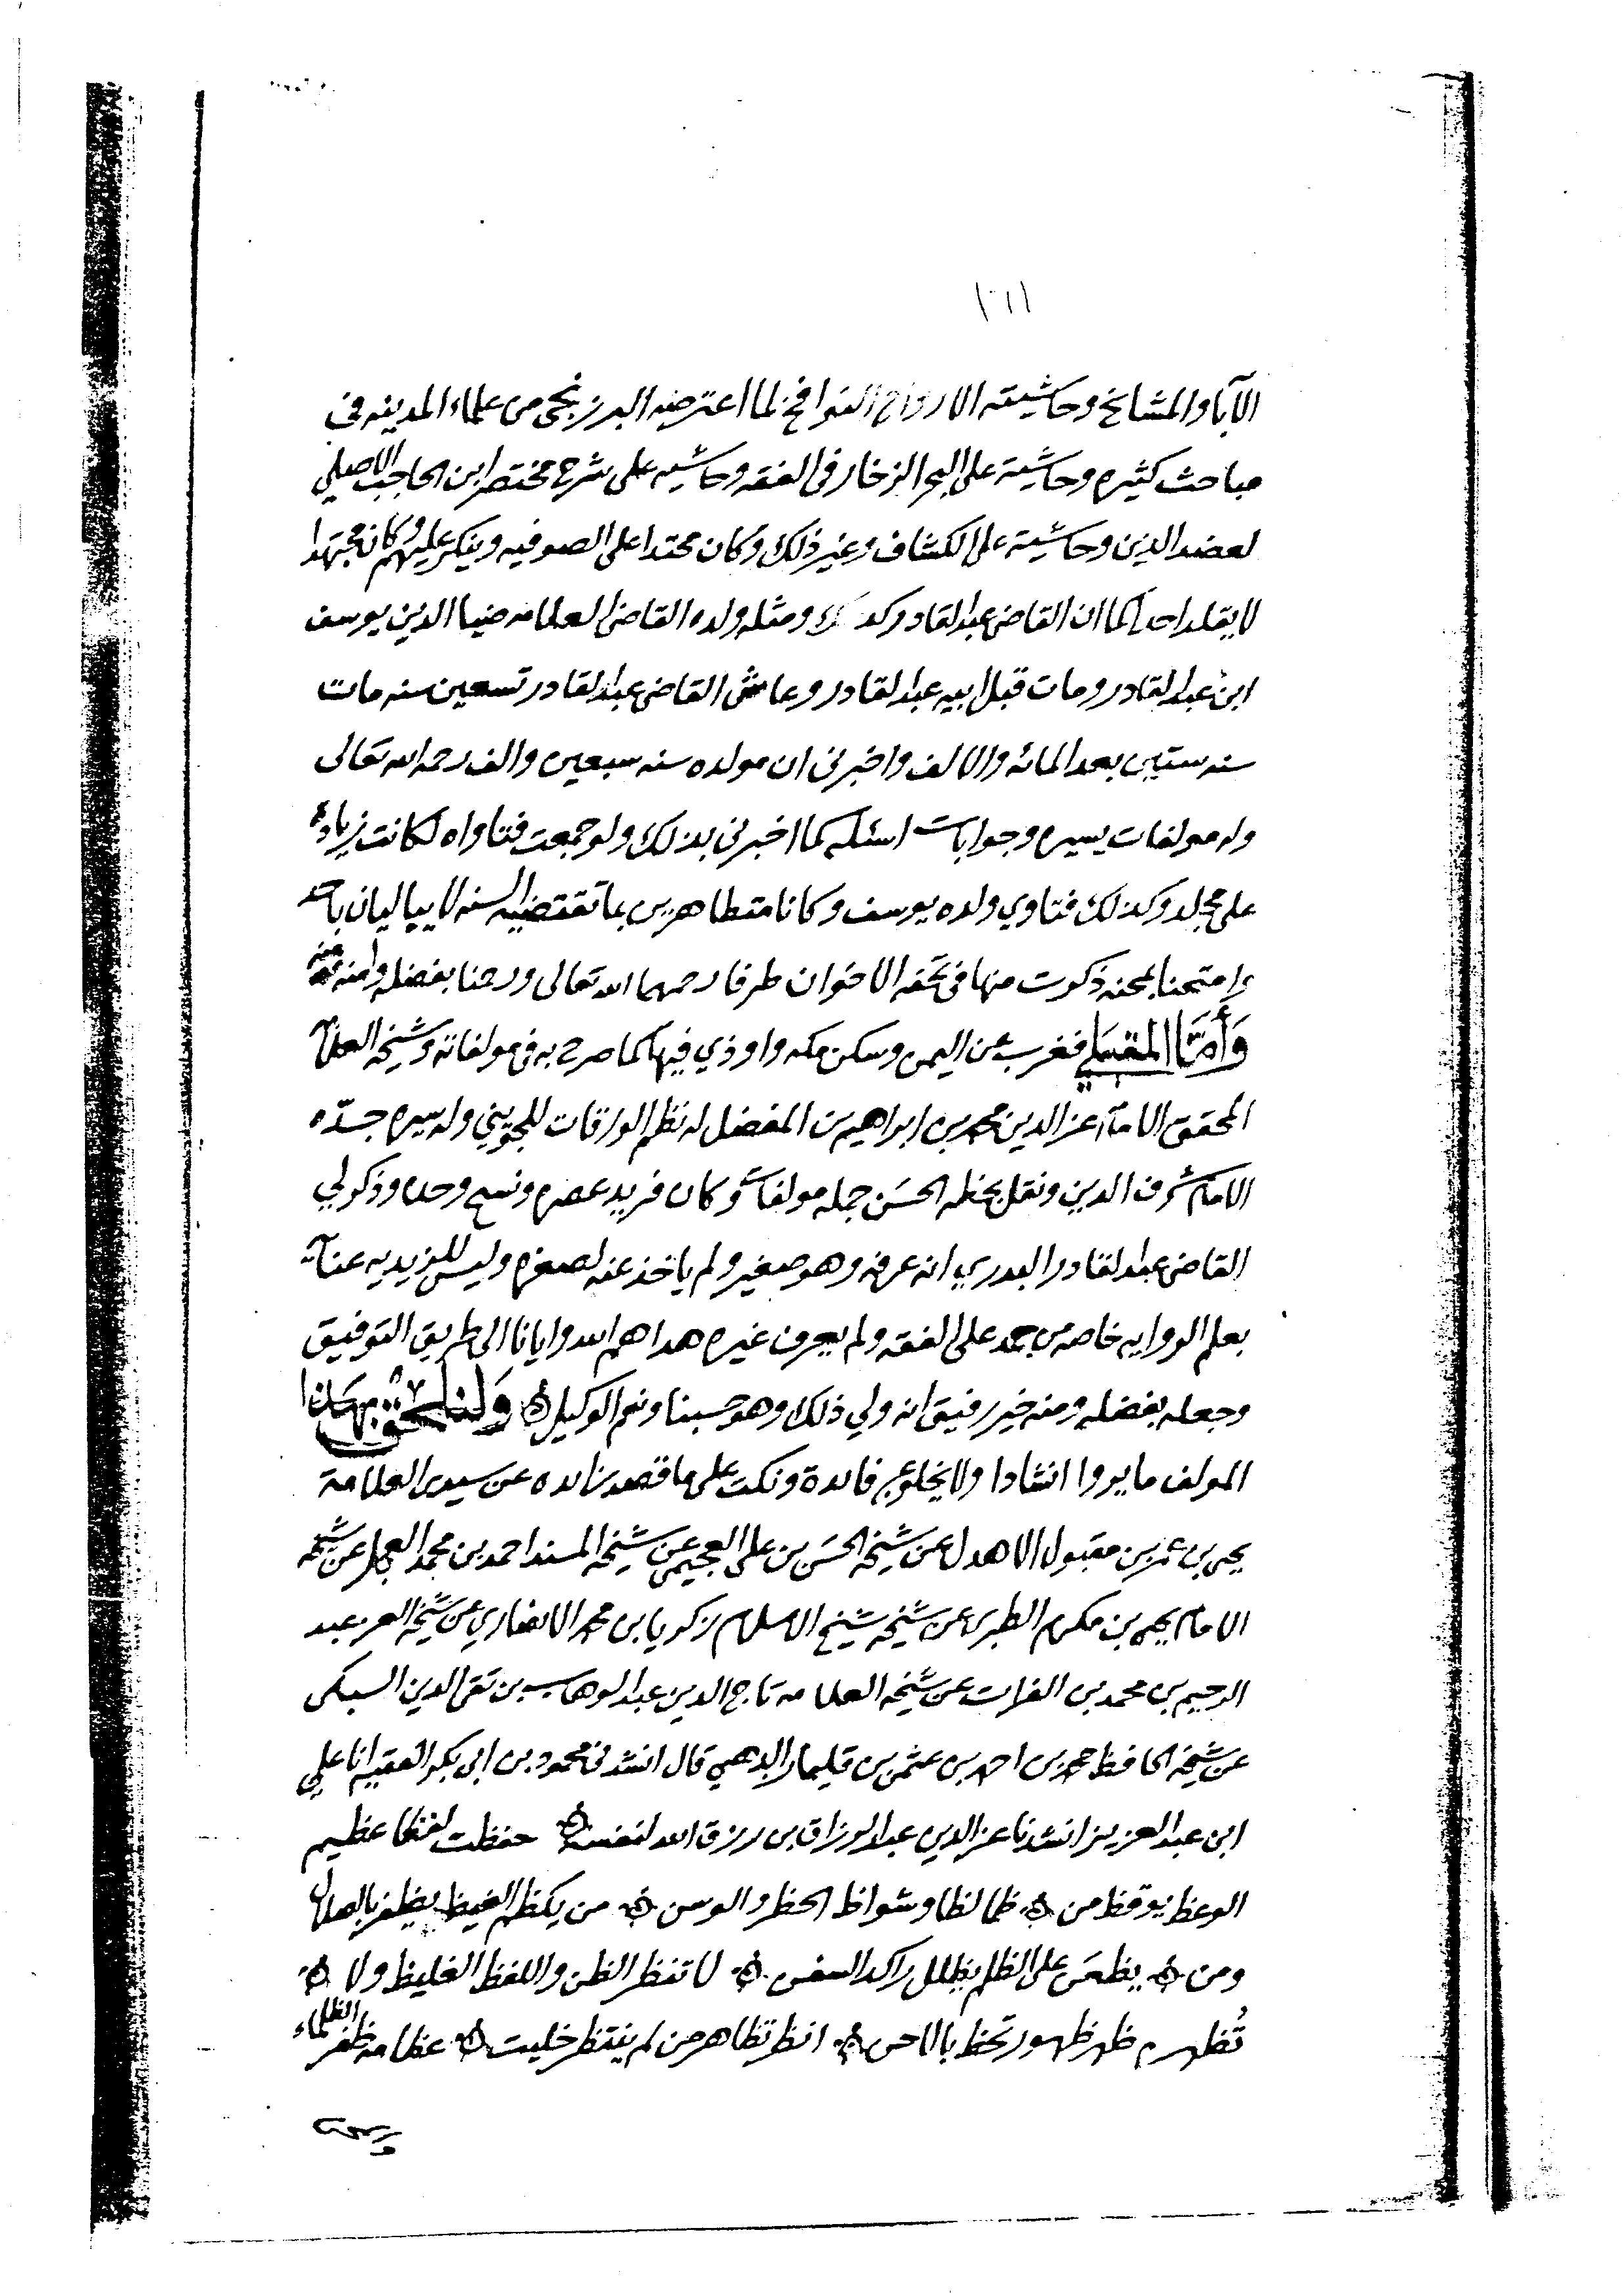 ١٠١١
الآباء والمشايخ وحاشيته الارواح النوافخ لما اعترضه البرزنجي من علماء المدينه في
مباحث كثيره وحاشية على البحر الزخار في الفقه وحاشيه على شرح مختصر ابن الحاجب الاصلي
لعضد الدين وحاشية على الكشاف وغير ذلك وكان محتدا على الصوفيه وينكر عليهم وكان مجتهدا
لا يقلد احدا كما ان القاضي عبد القادر كذلك ومثله ولده القاضي العلامه ضيا الدين يوسف
ابن عبد القادر ومات قبل ابيه عبد القادر وعاش القاضي عبد القادر تسعين سنه مات
سنه ستين بعد المائه والالف واخبرني ان مولده سنه سبعين والف رحمه الله تعالى
وله مولفات يسيره وجوابات اسئله كما اخبرني بذلك ولو جمعت فتاواه لكانت زيادة
على مجلد وكذلك فتاوي ولده يوسف وكانا متظاهرين بما تقتضيه السنه لا يباليان باحد
وامتحنا بمحنه ذكرت منها في تحفه الاخوان طرفا رحمهما الله تعالى ورحمنا بفضله وامنه
وَأَمَّا المقبلي فغرب عن اليمن وسكن مكه واوذي فيها كما صرح به في مولفاته وشيخه العلامة
المحقق الامام عز الدين محمد بن ابراهيم بن المفضل له نظم الورقات للجويني وله سيره جدّه
الامام شرف الدين ونقل بخطه الحسَن جمله مولفات وكان فريد عصره ونسيج وحده وذكر لي
القاضي عبد القادر البدري انه عرفه وهو صغير ولم ياخذ عنه لصغره وليس للزيديه عناية
بعلم الروايه خاصه من جمد على الفقه ولم يعرف غيره هداهم الله وايانا الى طريق التوفيق
وجعله بفضله ومنه خير رفيق انه ولي ذلك وهو حسبنا ونعم الوكيل وَلنلحق بهذا
المولف ما يروا انشادا ولا يخلو عن فائدة ونكت على ما قصد زائده عن سيدي العلامة
يحيى بن عمر بن مقبول الاهدل عن شيخه الحسَن بن علي العجيمي عن شيخه المسند احمد بن محمد العجل عن شيخه
الامام يحيى بن مكرم الطبري عن شيخه شيخ الاسلام زكريا بن محمد الانصاري عن شيخه العز عبد
الرحيم بن محمد بن الفرات عن شيخه العلامه تاج الدين عبد الوهاب بن تقي الدين السبكي
عن شيخه الحافظ محمد بن احمد بن عثمن بن قايماز الذهبي قال انشدني محمود بن ابي بكر الفقيه انا علي
ابن عبد العزيز انشدنا عز الدين عبد الرزاق بن رزق الله لنفسه حفظت لفظا عظيم
الوعظ يوقظ من ظما لظا وشواظ الحظر والوسن من يكظم الغيظ يظفر بالظلال
ومن يظعَن على الظلم يظلل راكد السفن لا تفظر الظن واللفظ الغليظ ولا
تُظهر ظهر ظهور تحظ بالاحن انظر تظاهر من لم ينتظر خليت عظامه ظفر الظلماء